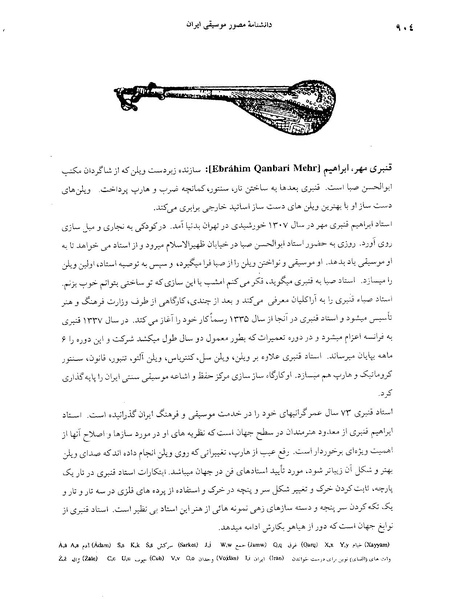 ۹۰٤
دانشنامهٔ مصور موسیقی ایران
قنبری مهر، ابراهیم [Ebráhim Qanbari Mehr]: سازنده زبردست ویلن که از شاگردان مکتب
ابوالحسن صبا است. قنبری بعدها به ساختن تار، سنتور، کمانچه ضرب و هارپ پرداخت. ویلن‌های
دست ساز او با بهترین ویلن های دست ساز اساتید خارجی برابری می‌کند.
استاد ابراهیم قنبری مهر در سال ۱۳۰۷ خورشیدی در تهران بدنیا آمد. در کودکی به نجاری و مبل سازی
روی آورد. روزی به حضور استاد ابوالحسن صبا در خیابان ظهیرالاسلام میرود و از استاد می خواهد تا به
او موسیقی یاد بدهد. او موسیقی و نواختن ویلن را از صبا فرا میگیرد، و سپس به توصیه استاد، اولین ویلن
را میسازد. استاد صبا به قنبری میگوید، فکر می‌کنم امشب با این سازی که تو ساختی بتوانم خوب بزنم.
استاد صباء قنبری را به آراکلیان معرفی می‌کند و بعد از چندی، کارگاهی از طرف وزارت فرهنگ و هنر
تأسیس میشود و استاد قنبری در آنجا از سال ۱۳۳۵ رسماً کار خود را آغاز می‌کند. در سال ۱۳۳۷ قنبری
به فرانسه اعزام میشود و در دوره تعمیرات که بطور معمول دو سال طول میکشد شرکت و این دوره را ۶
ماهه بپایان میرساند. استاد قنبری علاوه بر ویلن، ویلن سل، کنترباس، ویلن آلتو، تنبور، قانون، سنتور
کروماتیک و هارپ هم میسازد. او کارگاه ساز سازی مرکز حفظ و اشاعه موسیقی سنتی ایران را پایه گذاری
کرد.
استاد قنبری ۷۳ سال عمر گرانبهای خود را در خدمت موسیقی و فرهنگ ایران گذرانیده است. استاد
ابراهیم قنبری از معدود هنرمندان در سطح جهان است که نظریه های او در مورد سازها و اصلاح آنها از
اهمیت ویژه‌ای برخوردار است. رفع عیب از هارپ، تغییراتی که روی ویلن انجام داده اند که صدای ویلن
بهتر و شکل آن زیباتر شود، مورد تأیید استادهای فن در جهان میباشد. ابتکارات استاد قنبری در تار یک
پارچه، ثابت کردن خرک و تغییر شکل سر و پنجه در خرک و استفاده از پرده های فلزی در سه تار و تار و
یک تکه کردن سر پنجه و دسته سازهای زهی نمونه هائی از هنر این استاد بی نظیر است. استاد قنبری از
نوابغ جهان است که دور از هیاهو بکارش ادامه میدهد.
(Xayyam) خیام X,x Y,y (Qarq) غرق Q,q (Jamw) جمع W,w J,j (Sarkeš) سرکش Š,š K,k (Ádam) آدم Á,á A,a
(Žále) ژاله Ž,ž (Cub) چوب C,c U,u (Vojdán) وجدان V,v O,o (Irán) ایران I,i